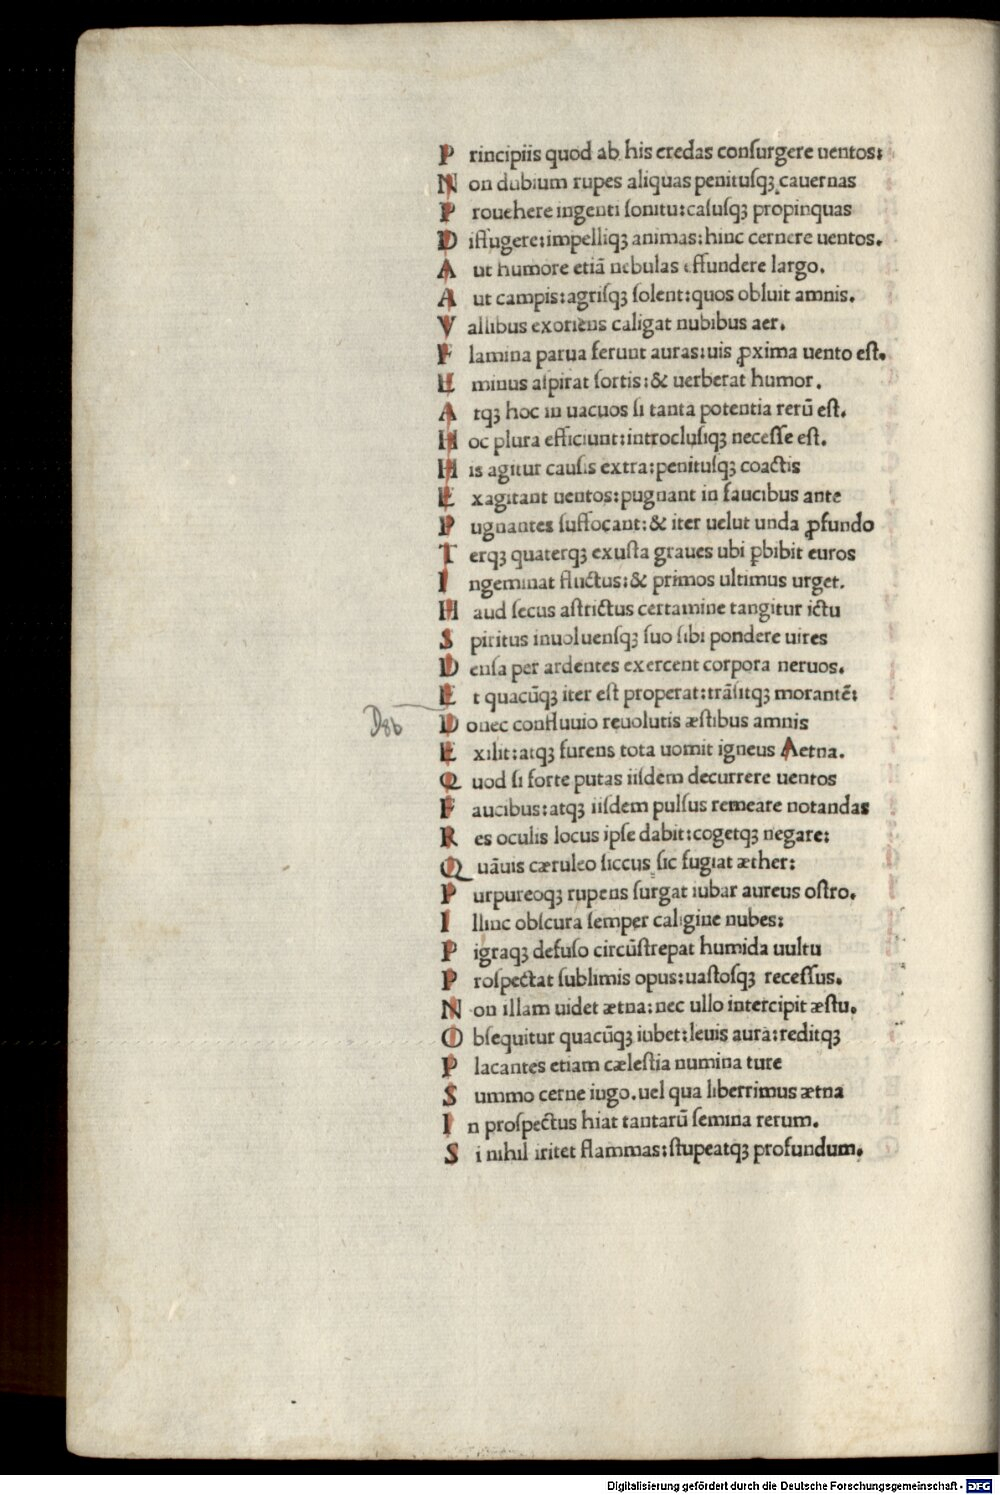 P rincipiis quod ab his credas conſurgere uentos:
N on dubium rupes aliquas penituſqꝫ cauernas
P rouehere ingenti ſonitu:caſuſqꝫ propinquas
D iffugere:impelliqꝫ animas:hinc cernere uentos.
A ut humore etiā nebulas effundere largo.
A ut campis:agriſqꝫ ſolent:quos obluit amnis.
V allibus exoriens caligat nubibus aer.
F lamina parua ferunt auras:uis ꝓxima uento eſt.
E minus aſpirat fortis:& uerberat humor.
A tqꝫ hoc in uacuos ſi tanta potentia rerū eſt.
H oc plura efficiunt:introcluſiqꝫ neceſſe eſt.
H is agitur cauſis extra:penituſqꝫ coactis
E xagitant uentos:pugnant in faucibus ante
P ugnantes ſuffocant:& iter uelut unda ꝓfundo
T erqꝫ quaterqꝫ exuſta graues ubi ꝑbibit euros
I ngeminat fluctus:& primos ultimus urget.
H aud ſecus aſtrictus certamine tangitur ictu
S piritus inuoluenſqꝫ ſuo ſibi pondere uires
D enſa per ardentes exercent corpora neruos.
E t quacūqꝫ iter eſt properat:trāſitqꝫ morantē:
D onec confluuio reuolutis æſtibus amnis
E xilit:atqꝫ furens tota uomit igneus Aetna.
Q uod ſi forte putas iiſdem decurrere uentos
F aucibus:atqꝫ iiſdem pulſus remeare notandas
R es oculis locus ipſe dabit:cogetqꝫ negare:
Q uāuis cæruleo ſiccus ſic fugiat æther:
P urpureoqꝫ rupens ſurgat iubar aureus oſtro.
I llinc obſcura ſemper caligine nubes:
P igraqꝫ defuſo circūſtrepat humida uultu
P roſpectat ſublimis opus:uaſtoſqꝫ receſſus.
N on illam uidet ætna:nec ullo intercipit æſtu.
O bſequitur quacūqꝫ iubet:leuis aura:reditqꝫ
P lacantes etiam cæleſtia numina ture
S ummo cerne iugo.uel qua liberrimus ætna
I n proſpectus hiat tantarū ſemina rerum.
S i nihil iritet flammas:ſtupeatqꝫ profundum.
D8b
Digitalisierung gefördert durch die Deutsche Forschungsgemeinschaft - DFG